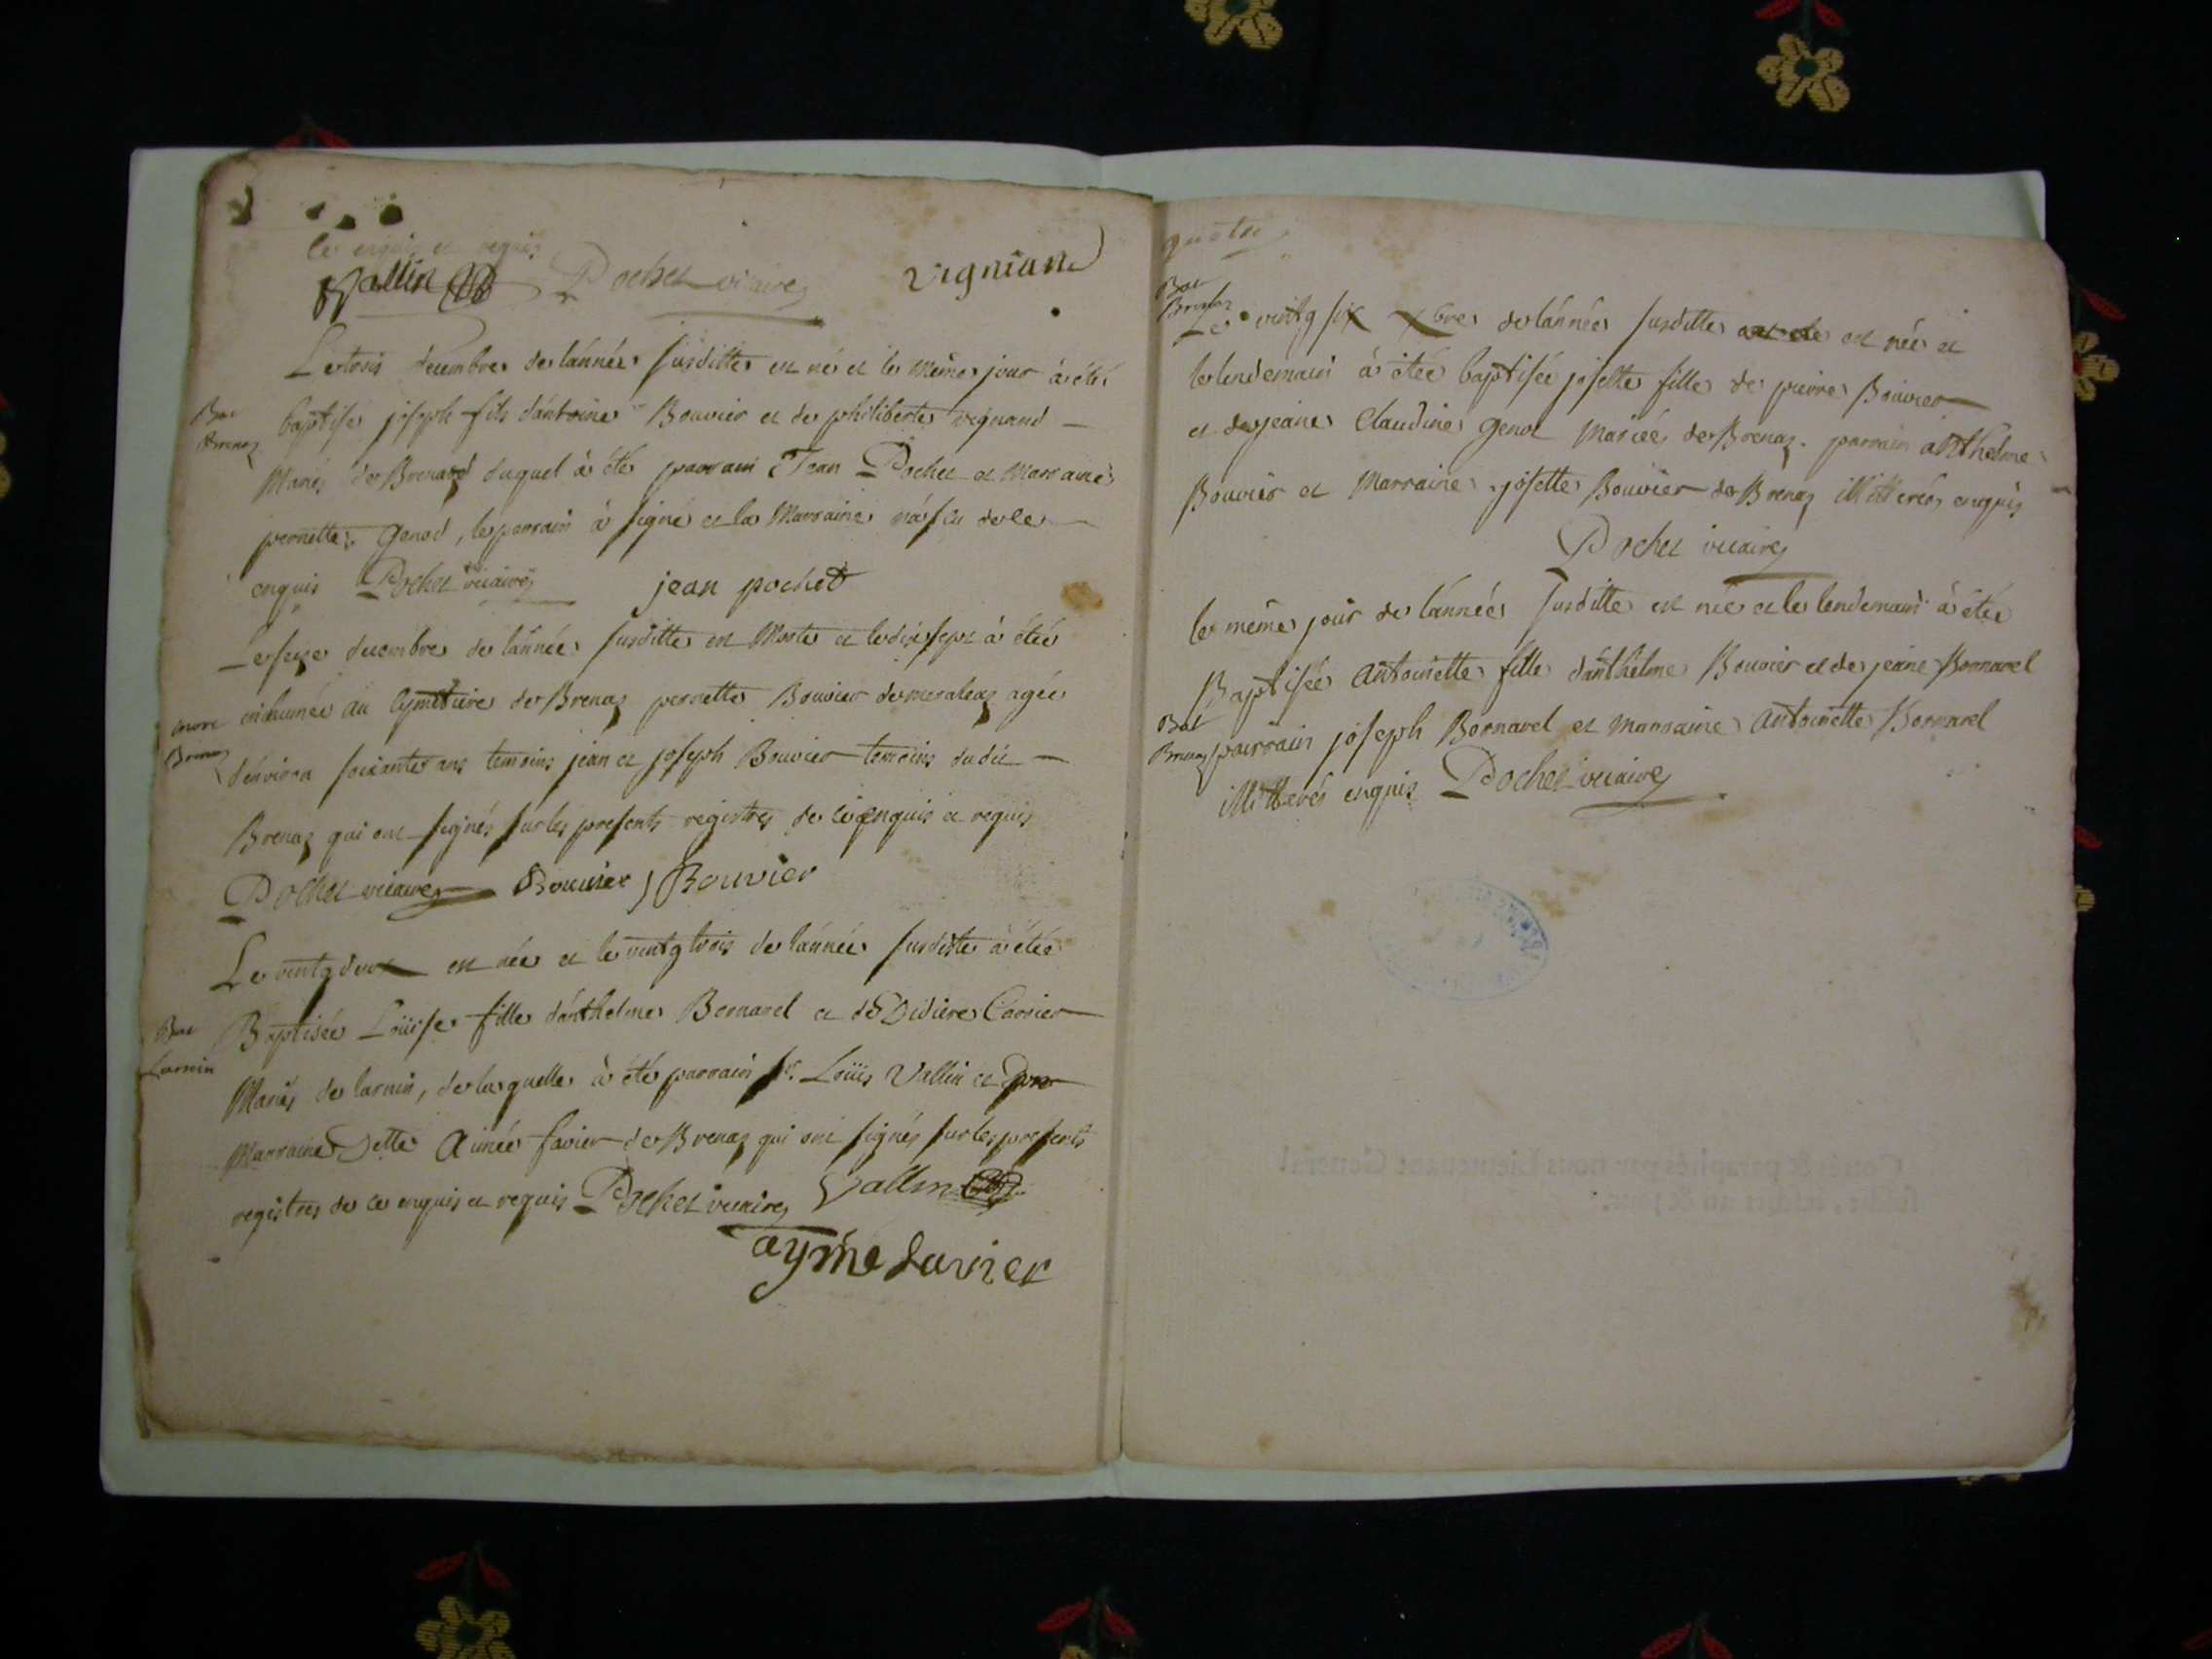 ce enquis et requis
Vallin Pochet vicaire vignian
Le trois decembre de lánnée susditte est né et le même jour à été
Bat baptisé joseph fils dántoine Bouvier et de philiberte vignand
Brenaz
Mariés de Brenaz duquel à été parrain Jean Pochet et Marraine
pernette Genod, le parrain à signé et la Marraine ná scu de ce
enquis Pochet vicaire jean pochet
Le seze decembre de lánnée susditte est Morte et le dix sept à étée
inhumée au cymetiere de Brenaz pernette Bouvier de meraleaz agée
mort
Brenaz
dénviron soixante ans temoins jean et joseph Bouvier temoins dudit
Brenaz qui ont signés sur les presents registres de ce enquis et requis
Pochet vicaire Bouvier J Bouvier
Le vintg deux est née et le vintg trois de lánnée susditte à étée
Baptisée Loüise fille dánthelme Bornarel et de Didiere Carrier
Bat
Larnin
Mariés de larnin, de laquelle à été parrain sr. Loüis Vallin et
Marraine Dette Aimée favier de Brenaz qui ont signés sur les presents
registres de ce enquis et requis Pochet vicaire Vallin
aymé favier
quatre
Bat
Brenaz
Le vintg six Xbre de lánnée susditte est née et
le lendemain à étée baptisée josette fille de pierre Bouvier
et de jeane Claudine Genod Mariés de Brenaz. parrain anthelme
Bouvier et Marraine josette Bouvier de Brenaz illitterés enquis
Pochet vicaire
le même jour de lánnée susditte est née et le lendemain à étée
Baptisée Antoinette fille dánthelme Bouvier et de jeane Bornarel
Bat
Brenaz parrain joseph Bornarel et marraine Antoinette Bornarel
illitterés enquis Pochet vicaire